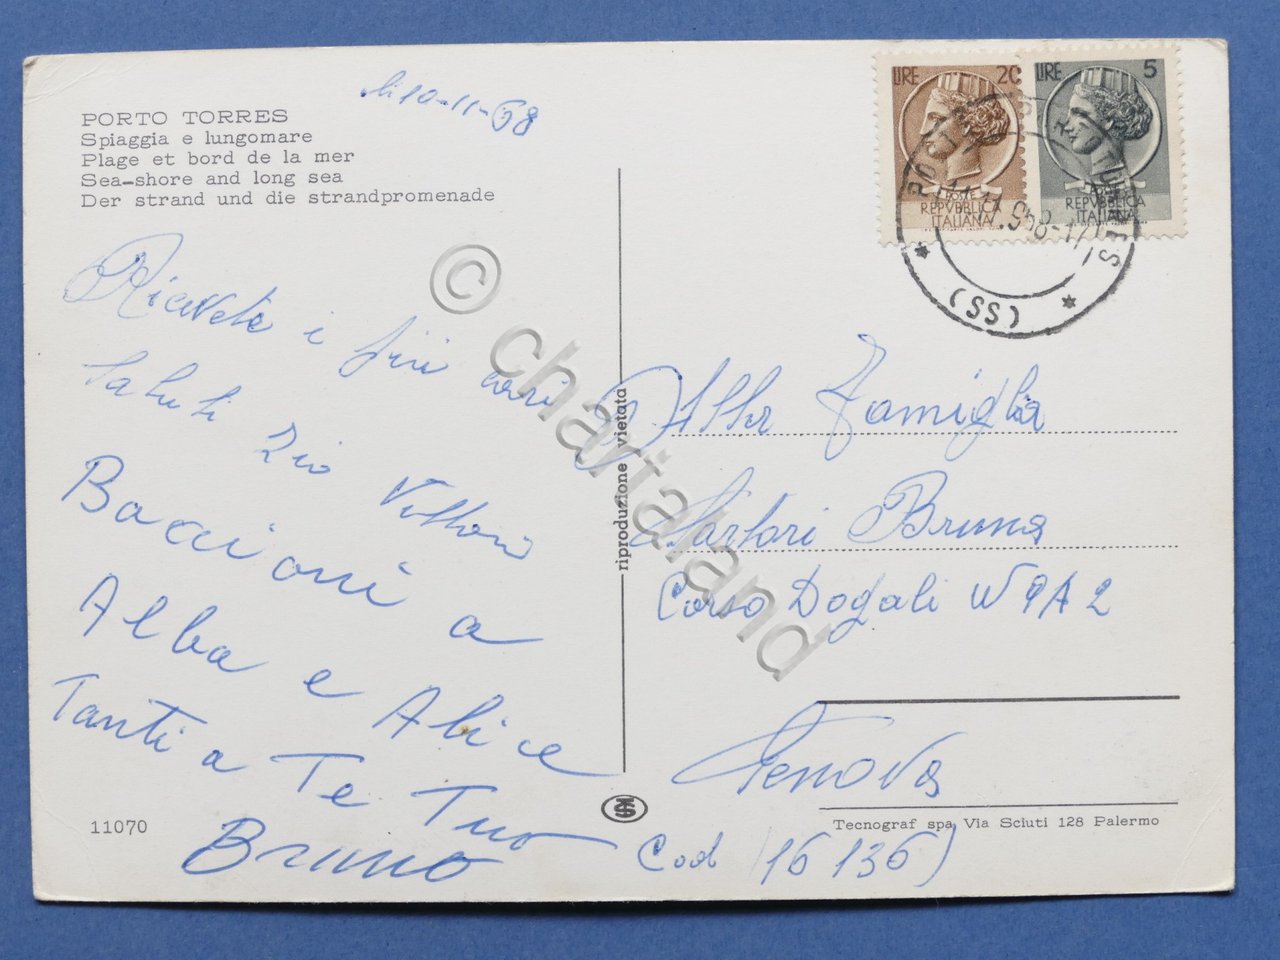 PORTO TORRES
Spiaggia e lungomare
Plage et bord de la mer
Sea-shore and long sea
Der strand und die strandpromenade
li 10-11-68
LIRE 20
POSTE
REPVBBLICA
ITALIANA
LIRE 5
POSTE
REPVBBLICA
ITALIANA
11.11.968-17
(SS)
Ricevete i più cari
saluti Zio Vittorio
Baccioni a
Alba e Alice
Tanti a Te Tuo
Bruno
riproduzione vietata
Alla Famiglia
Sartori Bruna
Corso Dogali N 9A 2
Genova
Cod (16136)
11070
Tecnograf spa Via Sciuti 128 Palermo
© chartaland